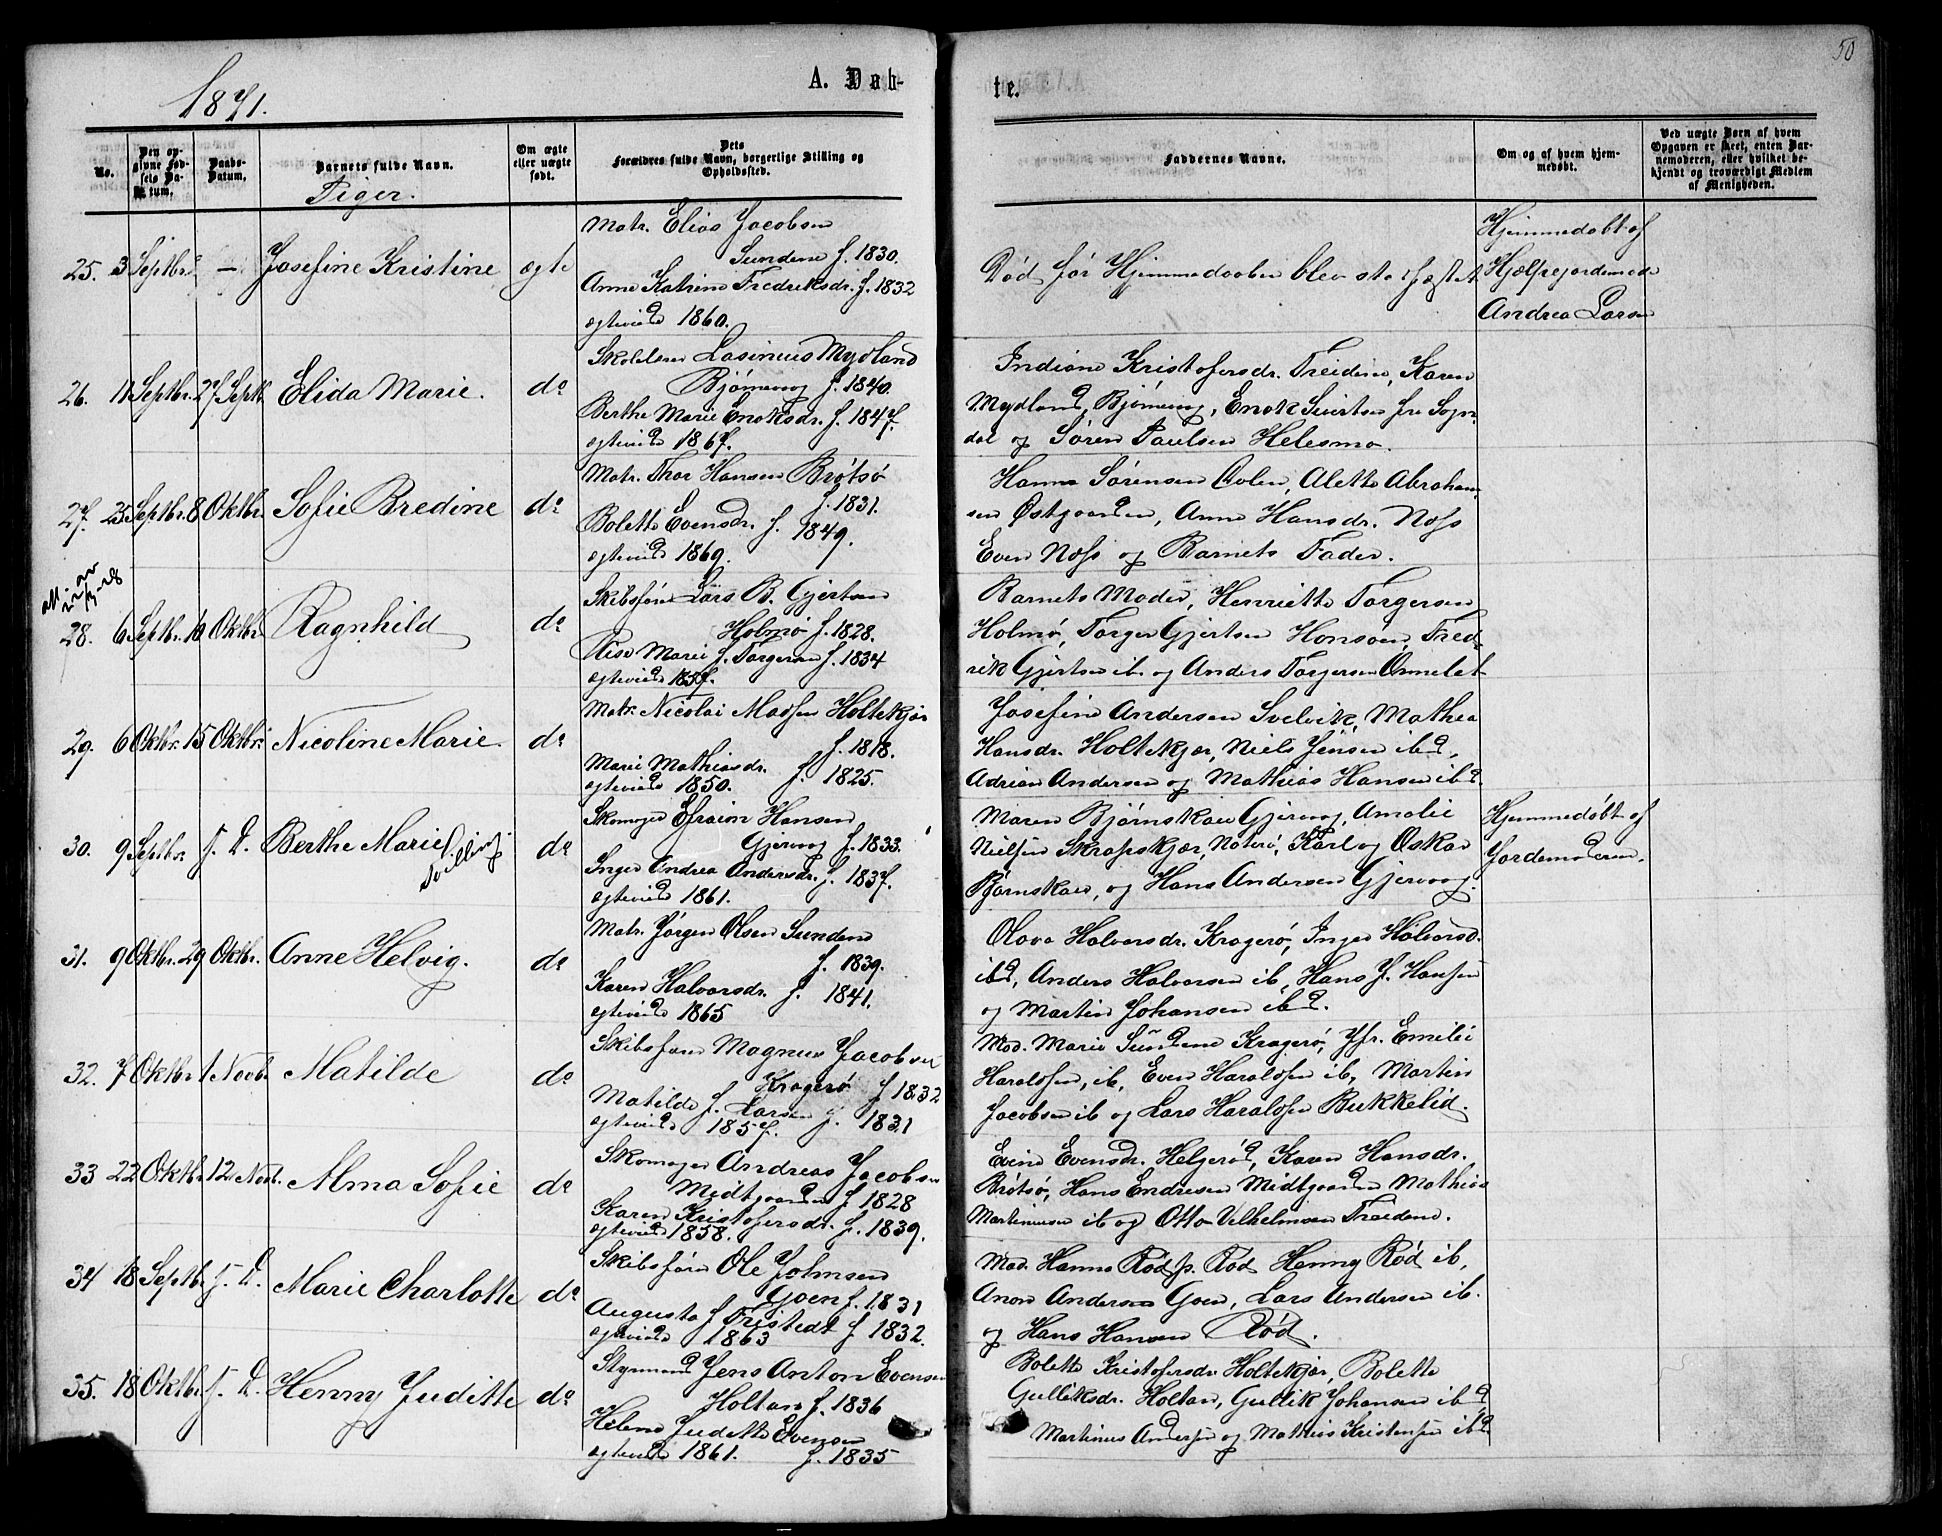 1871.
A. Døb-
No.
Den opgivne Fødsels Datum.
Daabs-Datum.
Barnets fulde Navn.
Piger.
Om ægte eller uægte født.
Dets Forældres fulde Navn, borgerlige Stilling og Opholdssted.
25. 3 Septbr. — Josefine Kristine ægte
Matr. Elias Jacobsen
Sundene f. 1830.
Anne Katrine Fredriksdr. f. 1832
egteviede 1860.
26. 11 Septbr. 27 Septb. Elida Marie. do
Skolelærer Lasinius Mydland
Bjørnevog f. 1840.
Berthe Marie Enoksdr. f. 1847.
egteviede 1867.
27. 25 Septbr. 8 Oktbr. Sofie Bredine do
Matr. Thor Hansen Brøtsø
f. 1831.
Bolette Evensdr. f. 1849.
egteviede 1869.
28. 6 Septbr. 10 Oktbr. Ragnhild do
Skibsfører Lars B. Gjertsen
Holmø f. 1828.
Elise Marie f. Torgersen f. 1834
egteviede 1857.
29. 6 Oktbr. 15 Oktbr. Nicoline Marie. do
Matr. Nicolai Madsen Holtekjær
f. 1818.
Marie Mathiasdr. f. 1825.
egteviede 1850.
30. 9 Septbr f. D. Berthe Marie Tvilling do
Skomager Efraim Hansen
Gjervog f. 1833.
Inger Andrea Andersdr. f. 1837.
egteviede 1861.
31. 9 Oktbr. 29 Oktbr. Anne Helvig. do
Matr. Jørgen Olsen Sundene
f. 1839.
Karen Halvorsdr. f. 1841.
egteviede 1865
32. 7 Oktbr 1 Novb. Matilde do
Skibsfører Magnus Jacobsen
Kragerø f. 1832
Matilde f. Larsen f. 1831
egteviede 1857.
33 22 Oktbr 12 Novb. Alma Sofie do
Skomager Andreas Jacobsen
Midtgaarden f. 1828
Karen Kristofersdr. f. 1839.
egteviede 1858.
34 18 Septbr f. D. Marie Charlotte do
Skibsfører Ole Johnsen
Goen f. 1831
Augusta f. Tristedt f. 1832.
egteviede 1863
35. 18 Oktbr f. D. Henny Juditte do
Styrmand Jens Anton Evensen
Holtan f. 1836
Helene Juditte Evensen
egteviede 1861. f. 1835
te.
50
Faddernes Navne.
Om og af hvem hjemmedøbt.
Ved uægte Børn af hvem Opgaven er skeet, enten Barnemoderen, eller hvilket bekjendt og troværdigt Medlem af Menigheden.
Død før Hjemmedaaben blev stadfæstet.
Hjemmedøbt af
Hjælpejordemoder
Andrea Larsen
Indiane Kristofersdr. Treidene, Karen
Mydland, Bjørnevog, Enok Sivertsen fra Sogn-
dal og Søren Paulsen Helesmo.
Hanna Sørensen Oolen, Alette Abraham-
sen Østgaarden, Anne Hansdr. Næss
Even Næss og Barnets Fader.
Barnets Moder, Henriette Torgersen
Holmø, Torger Gjertsen Honsøen, Fred-
rik Gjertsen ib. og Anders Torgersen Ormelet
Josefine Andersen Svelvik, Mathea
Hansdr. Holtekjær, Niels Jensen ibd,
Adrian Andersen og Mathias Hansen ibd.
Maren Bjørnskau Gjervog, Amalie
Nielsen Skrapekjær, Nøterø, Karl og Oskar
Bjørnskau, og Hans Andersen Gjervog.
Hjemmedøbt af
Jordemoderen.
Olava Halvorsdr. Kragerø, Inger Halvorsd.
ibd, Anders Halvorsen ib, Hans J. Hansen
og Martin Johansen ibd.
Mad. Marie Sundene Kragerø, Jfr. Emilie
Haraldsen, ib, Even Haraldsen ib, Martin
Jacobsen ib og Lars Haraldsen Bukkelid.
Evine Evensdr. Helgerød, Karen Hansdr.
Brøtsø, Hans Endresen Midtgaarden Mathias
Martiniusen ib og Otto Vilhelmsen Treidene.
Mad. Hanna Rød p. Rød Henny Rød ib,
Anon Andersen Goen, Lars Andersen ib.
og Hans Hansen Rød.
Bolette Kristofersdr Holtekjær, Bolette
Gulliksdr. Holtan, Gullik Johansen ibd
Martinus Andersen og Mathias Kristensen ibd.